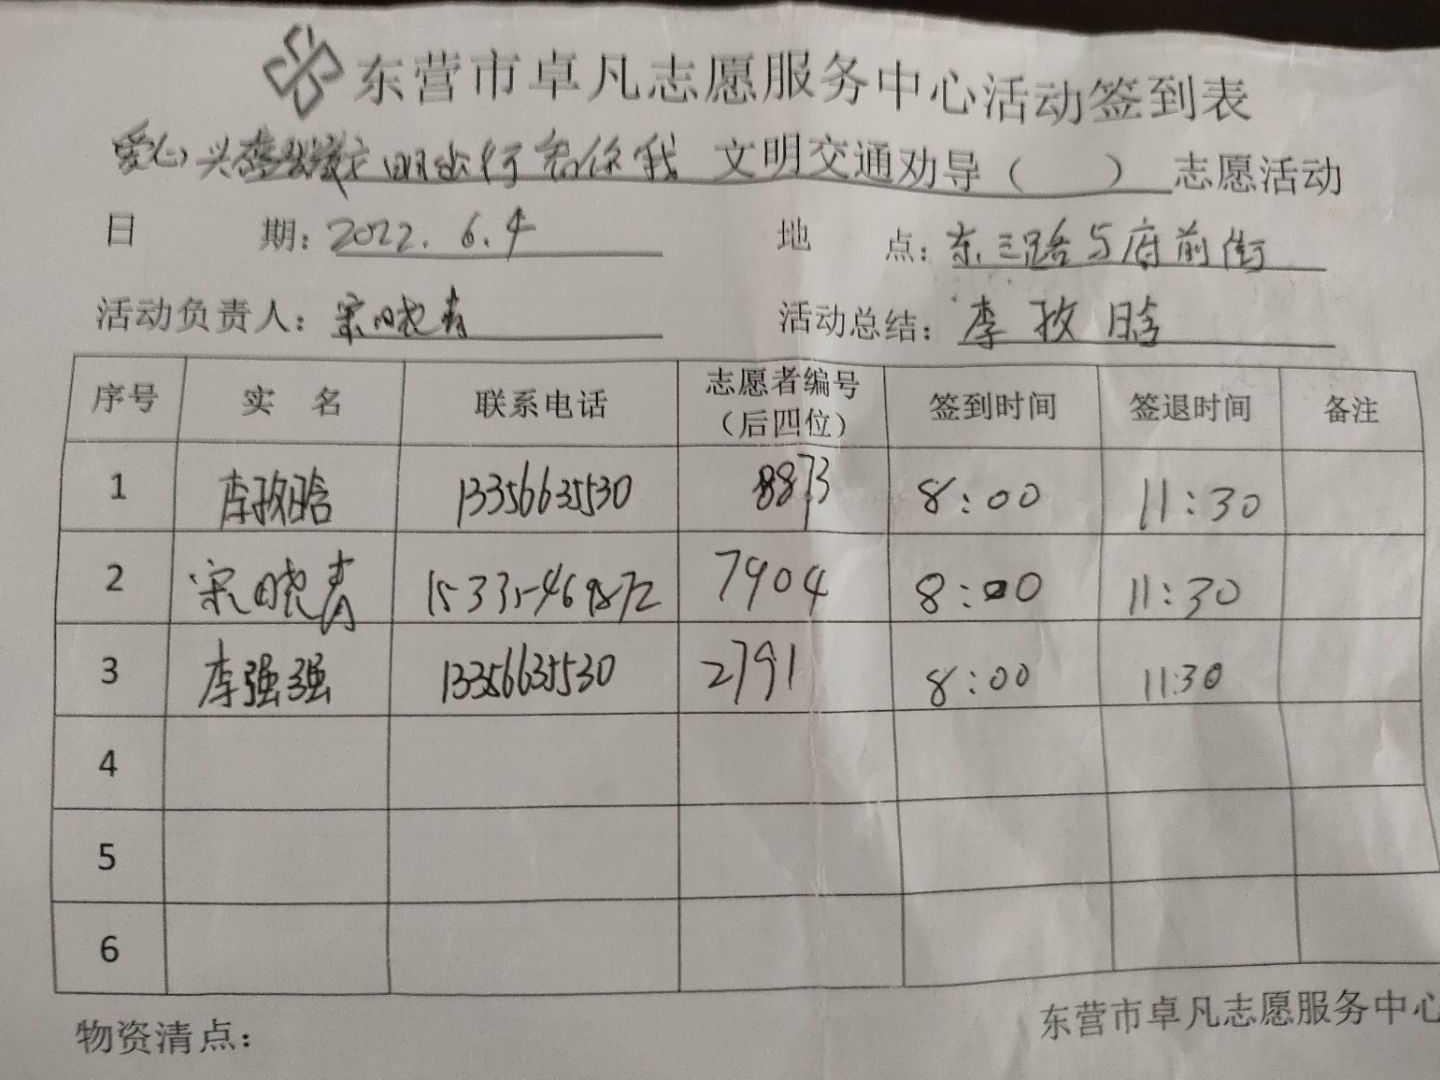 东营市卓凡志愿服务中心活动签到表
爱心 文明出行 你我 文明交通劝导( ) 志愿活动
日 期: 2022.6.4 地 点: 东三路与府前街
活动负责人: 宋晓青 活动总结: 李孜晗
序号 实 名 联系电话 志愿者编号(后四位) 签到时间 签退时间 备注
1 李孜晗 13356635530 8873 8:00 11:30
2 宋晓青 7904 8:00 11:30
3 李强强 13356635530 2791 8:00 11:30
4
5
6
物资清点: 东营市卓凡志愿服务中心